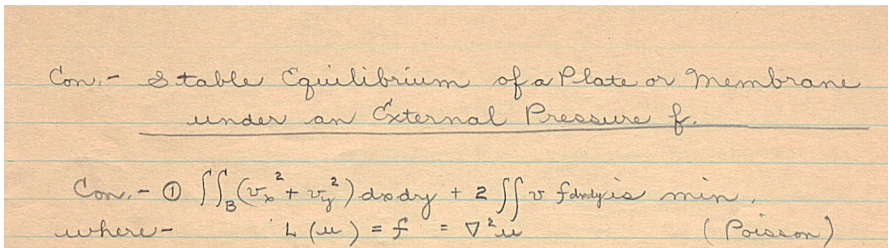 Con.- Stable Equilibrium of a Plate or Membrane
under an External Pressure f.
Con.- ① ∫∫_B (v_x² + v_y²) dxdy + 2 ∫∫ v f dxdy is min.
where- L (u) = f = ∇²u (Poisson)